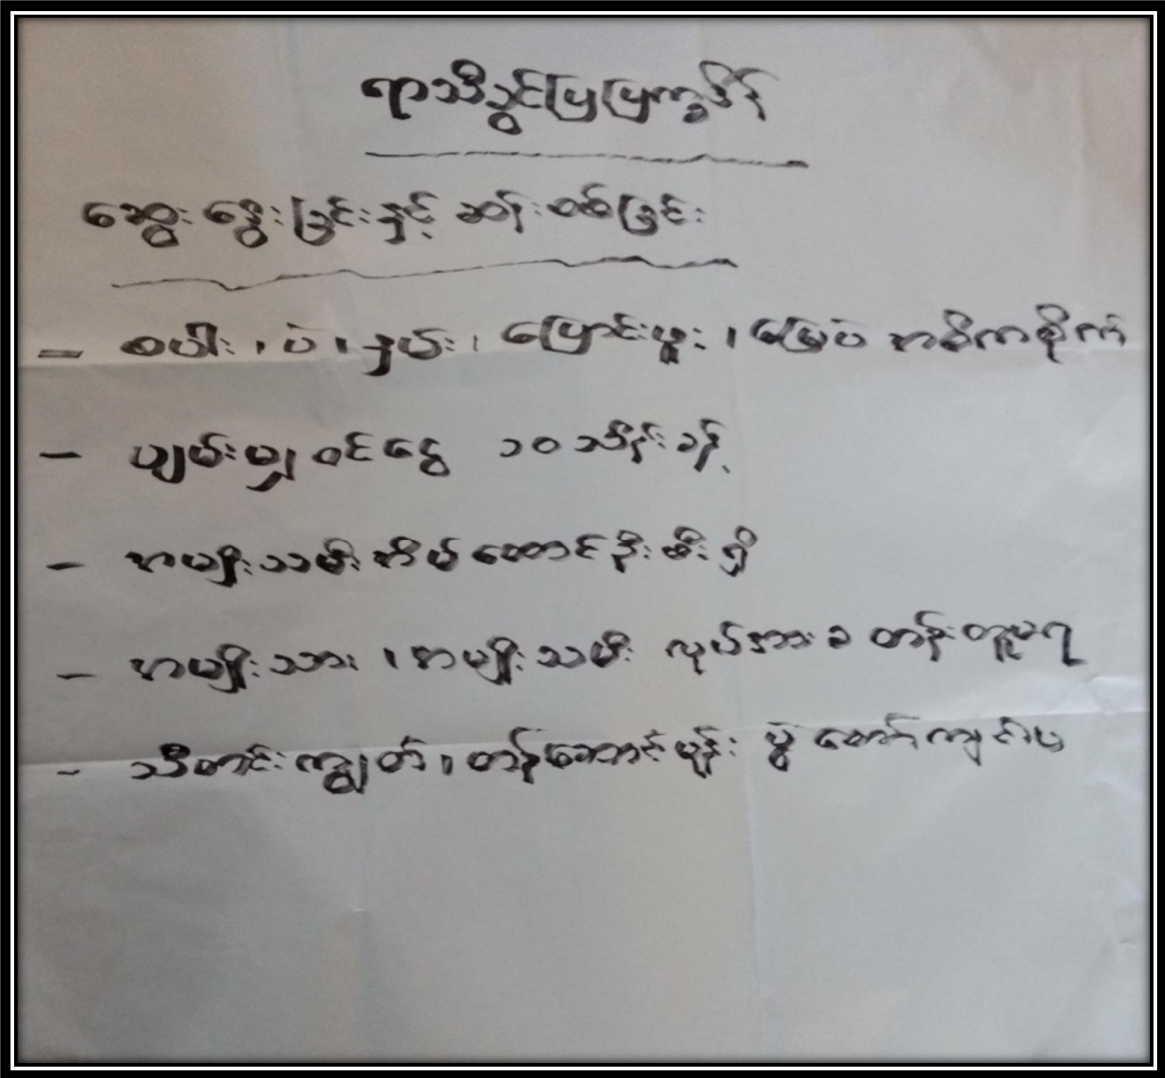 ရာသီခွင်ပြပြက္ခဒိန်
ဆွေးနွေးခြင်းနှင့် ဆန်းစစ်ခြင်း
- စပါး၊ ပဲ၊ နှမ်း၊ ပြောင်းဖူး၊ မြေပဲ အဓိကစိုက်
- ပျမ်းမျှဝင်ငွေ ၁၀သိန်းခန့်
- အမျိုးသမီးအိမ်ထောင်ဦးစီးရှိ
- အမျိုးသား၊ အမျိုးသမီး လုပ်အားခ တန်းတူမရ
- သီတင်းကျွတ်၊ တန်ဆောင်မုန်း ပွဲတော်ကျင်းပ